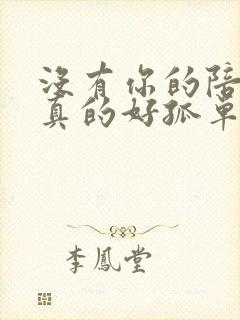 沒有你的陪
真的好孤單
李鳳堂